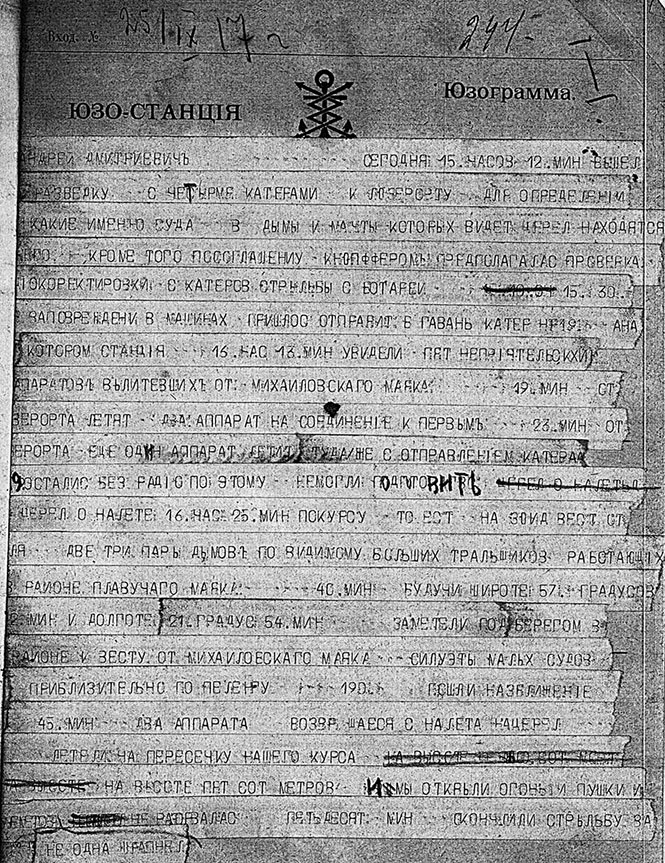 Вход. № 25/IX 17 г 244.
ЮЗО-СТАНЦІЯ Юзограмма.
АНДРЕЙ ДМИТРИЕВИЧЪ СЕГОДНЯ 15. ЧАСОВ 12. МИН ВЫШЕЛ
РАЗВЕДКУ С ЧЕТЫРМЕ КАТЕРАМИ К ДЛЯ ОПРЕДЕЛЕНІИ
КАКИЕ ИМЕННО СУДА В ДЫМЫ И МАЧТЫ КОТОРЫХ ВИДЕТ ЦЕРЕЛ НАХОДЯТСЯ
КРОМЕ ТОГО ПОСОГЛАШЕНИУ КНЮПФФЕРОМЪ ПРЕДПОЛАГАЛАС ПРОВЕРКА
КОРЕКТИРОВКИ С КАТЕРОВ СТРЕЛЬБЫ С БОТАРЕИ 15. 30.
ЗАПОВРЕЖДЕНИ В МАШИНАХ ПРИШЛОС ОТПРАВИТ В ГАВАНЬ КАТЕР НР19 НА
КОТОРОМ СТАНЦІЯ 16. ЧАС 13. МИН УВИДЕЛИ ПЯТ НЕПРІЯТЕЛЬСКХИ
АПАРАТОВЪ ВЪЛИТЕВШИХЪ ОТ МИХАИЛОВСКАГО МАЯКА 19. МИН ОТ
ЛЕТЯТ ДВА АППАРАТ НА СОЕДИНЕНІЕ К ПЕРВЫМЪ 23. МИН ОТ
ЕЩЕ ОДИН АППАРАТ ЛЕТИТ ТУДА/ЖЕ С ОТПРАВЛЕНІЕМ КАТЕРА
ОСТАЛИС БЕЗ РАДІО ПО ЭТОМУ НЕМОГЛИ ПОДГОТОВИТЬ
ЦЕРЕЛ О НАЛЕТЕ 16. ЧАС 25. МИН ПОКУРСУ ТО ЕСТ НА ЗЮИД ВЕСТ
ДВЕ ТРИ ПАРЫ ДЫМОВЪ ПО ВИДИМОМУ БОЛЬШИХ ТРАЛЬШИКОВ РАБОТАЮЩІХ
РАЙОНЕ ПЛАВУЧАГО МАЯКА 40. МИН БУДУЧИ ШИРОТЕ 57. ГРАДУСОВ
МИН И ДОЛГОТЕ 21. ГРАДУС 54. МИН ЗАМЕТЕЛИ ПОД БЕРЕГОМ В
РАЙОНЕ К ВЕСТУ ОТ МИХАИЛОВСКАГО МАЯКА СИЛУЭТЫ МАЛЫХ СУДОВ
ПРИБЛИЗИТЕЛЬНО ПО ПЕЛЕНГУ 190. ПОШЛИ НАЗБЛИЖЕНІЕ
45. МИН ДВА АППАРАТА С НАЛЕТА НАЦЕРЕЛ
ЛЕТЕЛИ НА ПЕРЕСЕЧКУ НАШЕГО КУРСА
НА ВЫСОТЕ ПЯТ СОТ МЕТРОВ И МЫ ОТКРЫЛИ ОГОНЬ И ПУШКИ И
НЕ РАЗРВАЛАС ПЕТЬДЕСЯТ МИН ОКОНЧИЛИ СТРЕЛЬБУ ЗА
НЕ ОДНА ШРАПНЕЛ